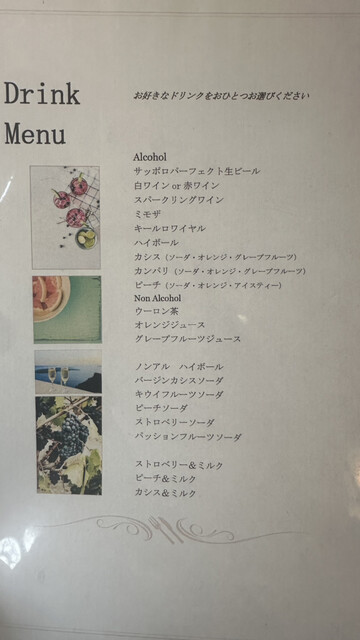 Drink
Menu
お好きなドリンクをおひとつお選びください
Alcohol
サッポロパーフェクト生ビール
白ワイン or 赤ワイン
スパークリングワイン
ミモザ
キールロワイヤル
ハイボール
カシス（ソーダ・オレンジ・グレープフルーツ）
カンパリ（ソーダ・オレンジ・グレープフルーツ）
ピーチ（ソーダ・オレンジ・アイスティー）
Non Alcohol
ウーロン茶
オレンジジュース
グレープフルーツジュース
ノンアル　ハイボール
バージンカシスソーダ
キウイフルーツソーダ
ピーチソーダ
ストロベリーソーダ
パッションフルーツソーダ
ストロベリー＆ミルク
ピーチ＆ミルク
カシス＆ミルク